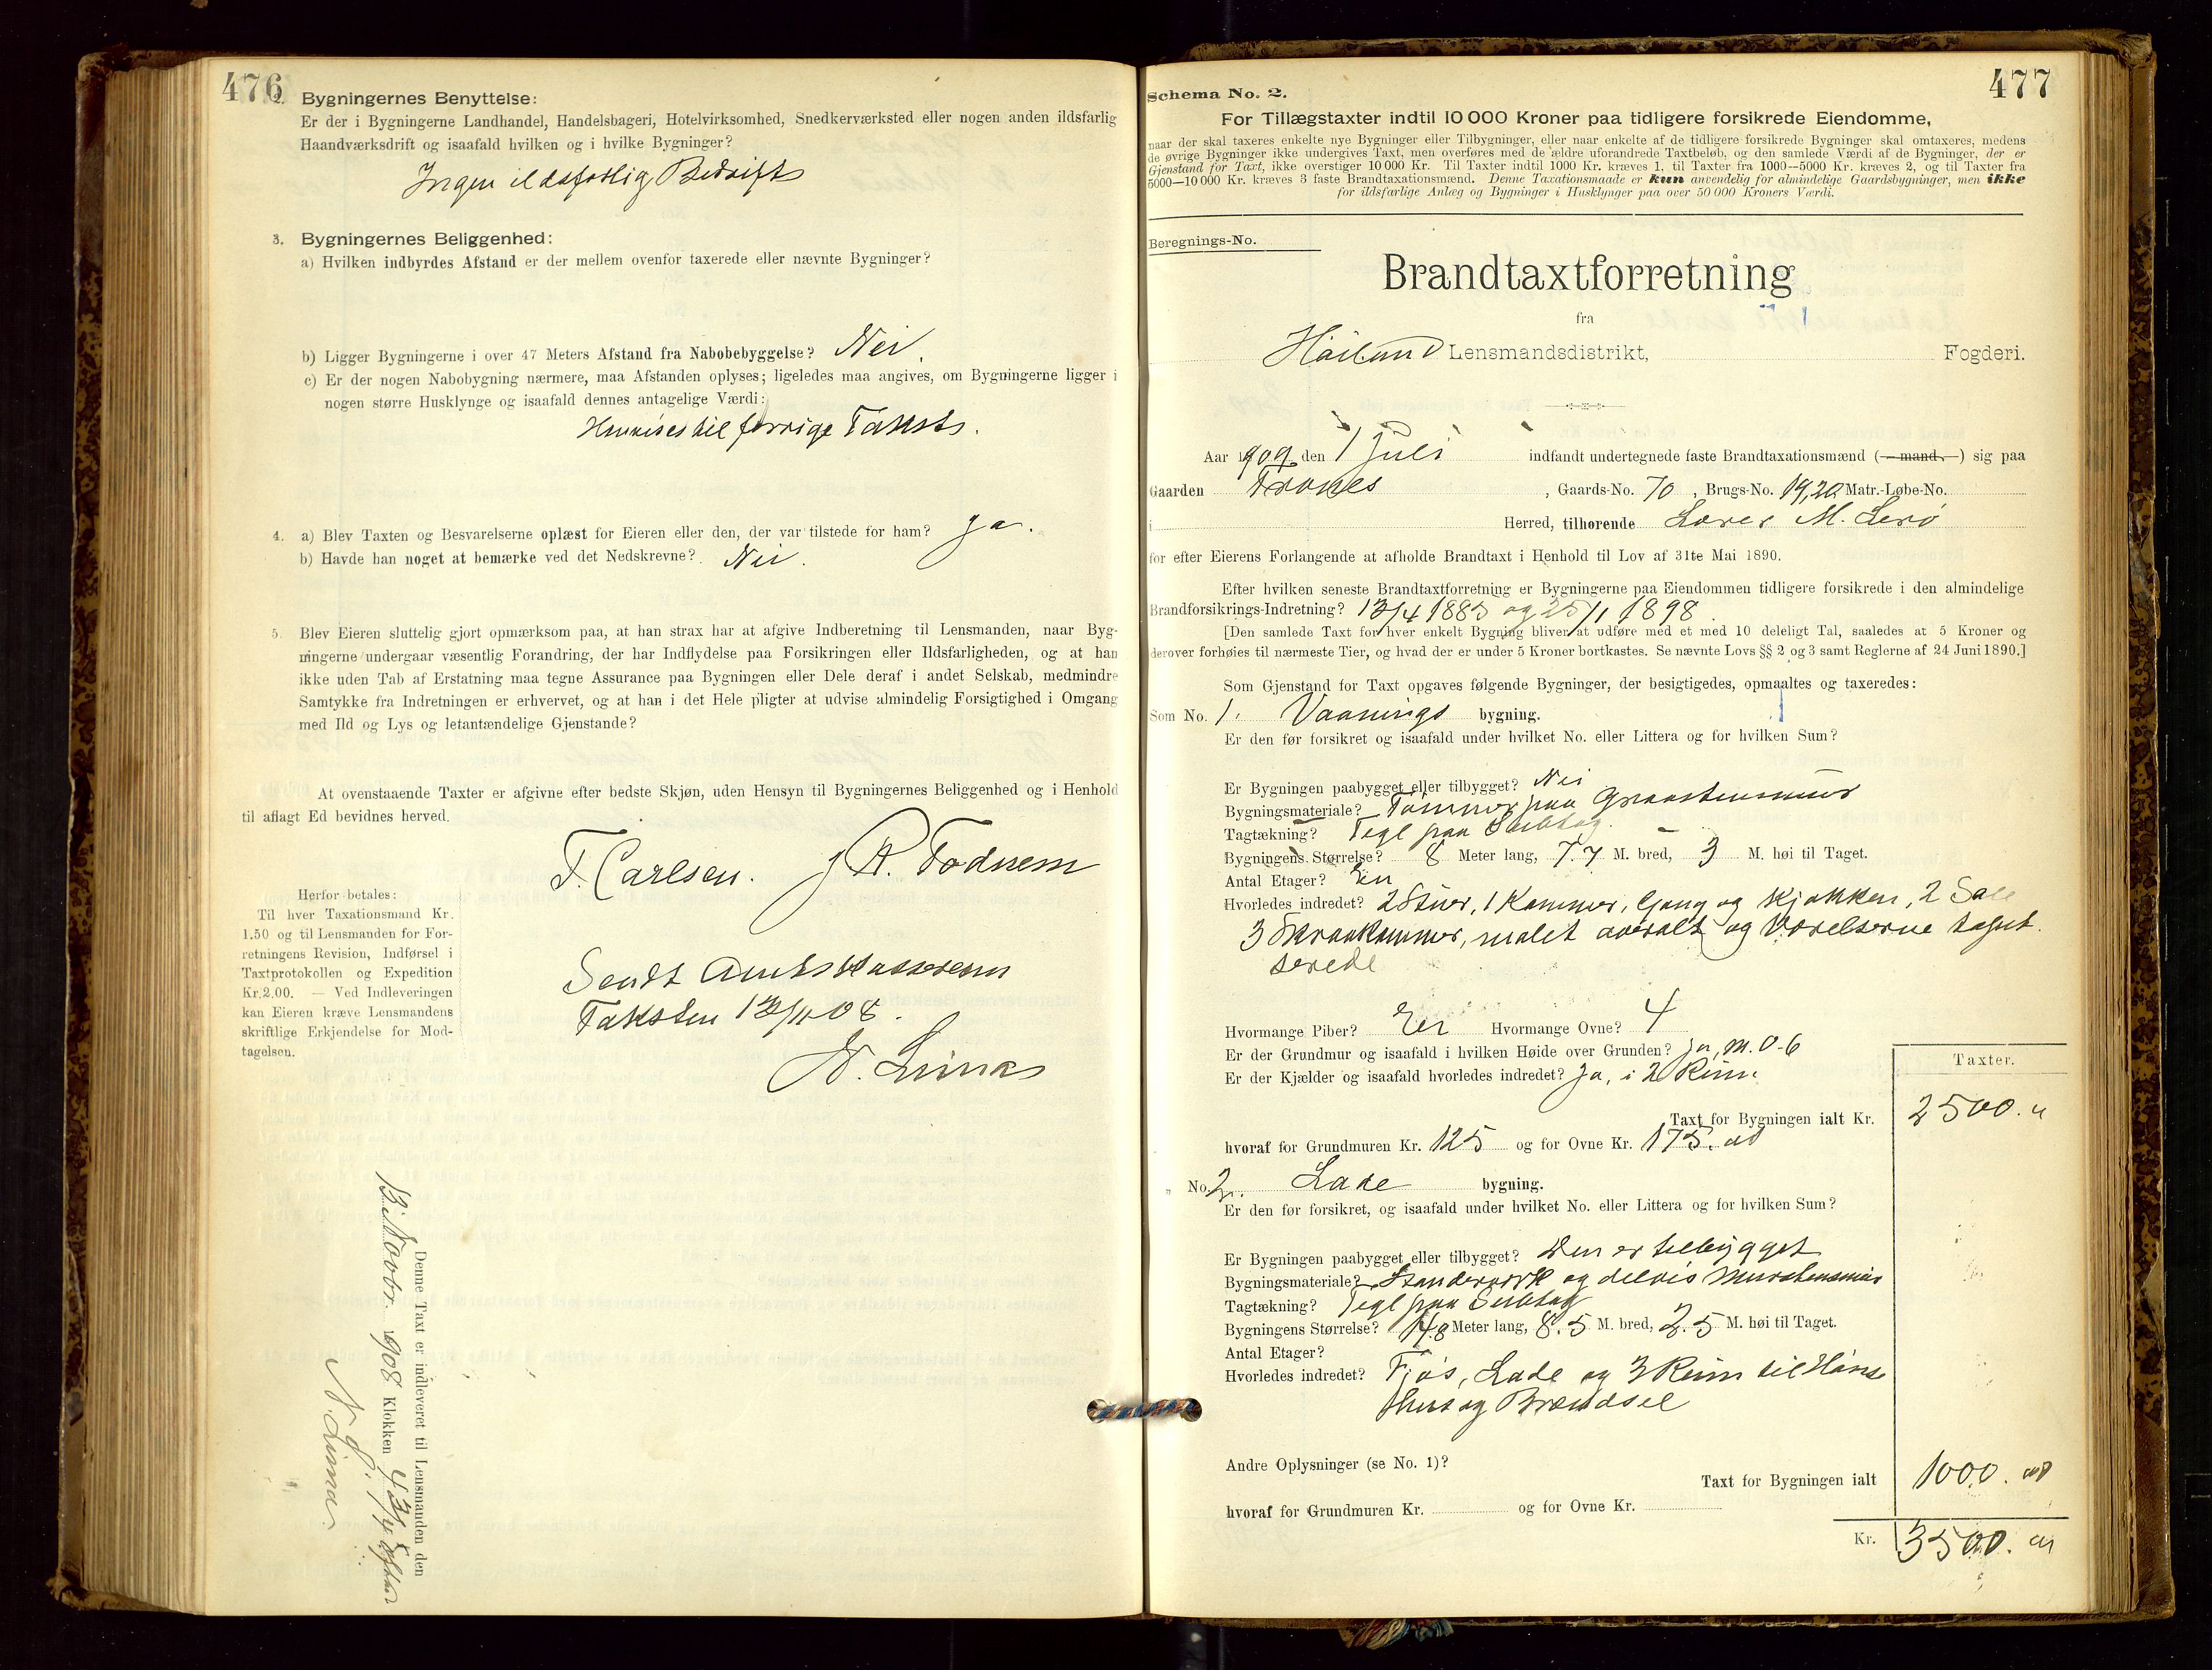 476
2. Bygningernes Benyttelse:
Er der i Bygningerne Landhandel, Handelsbageri, Hotelvirksomhed, Snedkerværksted eller nogen anden ildsfarlig
Haandværksdrift og isaafald hvilken og i hvilke Bygninger?
Ingen ildsfarlig Bedrift
3. Bygningernes Beliggenhed:
a) Hvilken indbyrdes Afstand er der mellem ovenfor taxerede eller nævnte Bygninger?
b) Ligger Bygningerne i over 47 Meters Afstand fra Nabobebyggelse? Nei.
c) Er der nogen Nabobygning nærmere, maa Afstanden oplyses; ligeledes maa angives, om Bygningerne ligger i
nogen større Husklynge og isaafald dennes antagelige Værdi:
Henvises til forrige Takst.
4. a) Blev Taxten og Besvarelserne oplæst for Eieren eller den, der var tilstede for ham? Ja.
b) Havde han noget at bemærke ved det Nedskrevne? Nei.
5. Blev Eieren sluttelig gjort opmærksom paa, at han strax har at afgive Indberetning til Lensmanden, naar Byg-
ningerne undergaar væsentlig Forandring, der har Indflydelse paa Forsikringen eller Ildsfarligheden, og at han
ikke uden Tab af Erstatning maa tegne Assurance paa Bygningen eller Dele deraf i andet Selskab, medmindre
Samtykke fra Indretningen er erhvervet, og at han i det Hele pligter at udvise almindelig Forsigtighed i Omgang
med Ild og Lys og letantændelige Gjenstande?
At ovenstaaende Taxter er afgivne efter bedste Skjøn, uden Hensyn til Bygningernes Beliggenhed og i Henhold
til aflagt Ed bevidnes herved.
T. Carlsen. J R. Todnem
Herfor betales:
Til hver Taxationsmand Kr.
1.50 og til Lensmanden for For-
retningens Revision, Indførsel i
Taxtprotokollen og Expedition
Kr. 2.00. — Ved Indleveringen
kan Eieren kræve Lensmandens
skriftlige Erkjendelse for Mod-
tagelsen.
Sendt Amtskassereren
Taksten 13/11 08.
N. Lima
Denne Taxt er indleveret til Lensmanden den
13. Novbr. 1908 Klokken 4 3/4 Efter
N. Lima
477
Schema No. 2.
For Tillægstaxter indtil 10 000 Kroner paa tidligere forsikrede Eiendomme,
naar der skal taxeres enkelte nye Bygninger eller Tilbygninger, eller naar enkelte af de tidligere forsikrede Bygninger skal omtaxeres, medens
de øvrige Bygninger ikke undergives Taxt, men overføres med de ældre uforandrede Taxtbeløb, og den samlede Værdi af de Bygninger, der er
Gjenstand for Taxt, ikke overstiger 10 000 Kr. Til Taxter indtil 1000 Kr. kræves 1, til Taxter fra 1000—5000 Kr. kræves 2, og til Taxter fra
5000—10 000 Kr. kræves 3 faste Brandtaxationsmænd. Denne Taxationsmaade er kun anvendelig for almindelige Gaardsbygninger, men ikke
for ildsfarlige Anlæg og Bygninger i Husklynger paa over 50 000 Kroners Værdi.
Beregnings-No.
Brandtaxtforretning
fra
Høiland Lensmandsdistrikt, Fogderi.
Aar 1909 den 1 Juli indfandt undertegnede faste Brandtaxationsmænd (-mand-) sig paa
Gaarden Trones, Gaards-No. 70, Brugs-No. 19,20 Matr.-Løbe-No.
i Herred, tilhørende M. Lerø
for efter Eierens Forlangende at afholde Brandtaxt i Henhold til Lov af 31te Mai 1890.
Efter hvilken seneste Brandtaxtforretning er Bygningerne paa Eiendommen tidligere forsikrede i den almindelige
Brandforsikrings-Indretning? 13/4 1885 og 25/1 1898.
[Den samlede Taxt for hver enkelt Bygning bliver at udføre med et med 10 deleligt Tal, saaledes at 5 Kroner og
derover forhøies til nærmeste Tier, og hvad der er under 5 Kroner bortkastes. Se nævnte Lovs §§ 2 og 3 samt Reglerne af 24 Juni 1890.]
Som Gjenstand for Taxt opgaves følgende Bygninger, der besigtigedes, opmaaltes og taxeredes:
Som No. 1. Vaanings bygning.
Er den før forsikret og isaafald under hvilket No. eller Littera og for hvilken Sum?
Er Bygningen paabygget eller tilbygget? Nei
Bygningsmateriale? Tømmer paa Graastensmur
Tagtækning? Tegl paa Subtag.
Bygningens Størrelse? 8 Meter lang, 7.7 M. bred, 3 M. høi til Taget.
Antal Etager? En
Hvorledes indredet? 2 Stuer, 1 Kammer, Gang og Kjøkken, 2 Sale
3 Skraakammer, malet overalt og Værelserne tapet.
serede
Hvormange Piber? En Hvormange Ovne? 4
Er der Grundmur og isaafald i hvilken Høide over Grunden? Ja, m. 0.6
Er der Kjælder og isaafald hvorledes indredet? Ja, i 2 Rum.
Taxter.
Taxt for Bygningen ialt Kr. 2500.
hvoraf for Grundmuren Kr. 125 og for Ovne Kr. 175.
" No. 2. Lade bygning.
Er den før forsikret, og isaafald under hvilket No. eller Littera og for hvilken Sum?
Er Bygningen paabygget eller tilbygget? Den er tilbygget
Bygningsmateriale? Standerverk og delvis Murstensmur
Tagtækning? Tegl paa Subtag
Bygningens Størrelse? 14.8 Meter lang, 8.5 M. bred, 2.5 M. høi til Taget.
Antal Etager?
Hvorledes indredet? Fjøs, Lade og 3 Rum til Hønse
hus og Brændsel
Andre Oplysninger (se No. 1)?
Taxt for Bygningen ialt 1000.
hvoraf for Grundmuren Kr. og for Ovne Kr.
Kr. 3500.